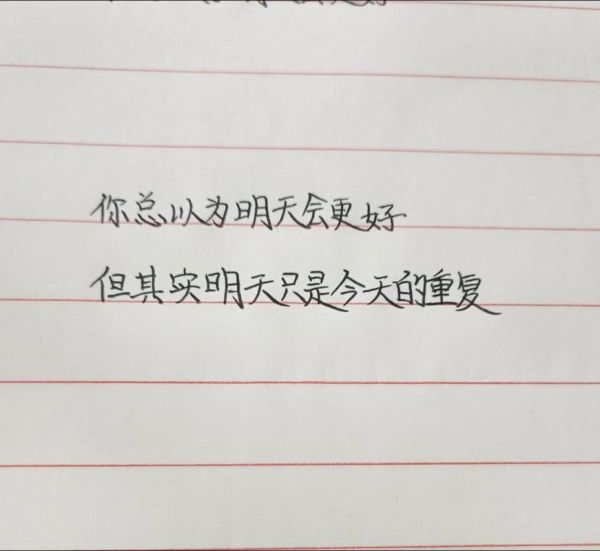 你总以为明天会更好
但其实明天只是今天的重复